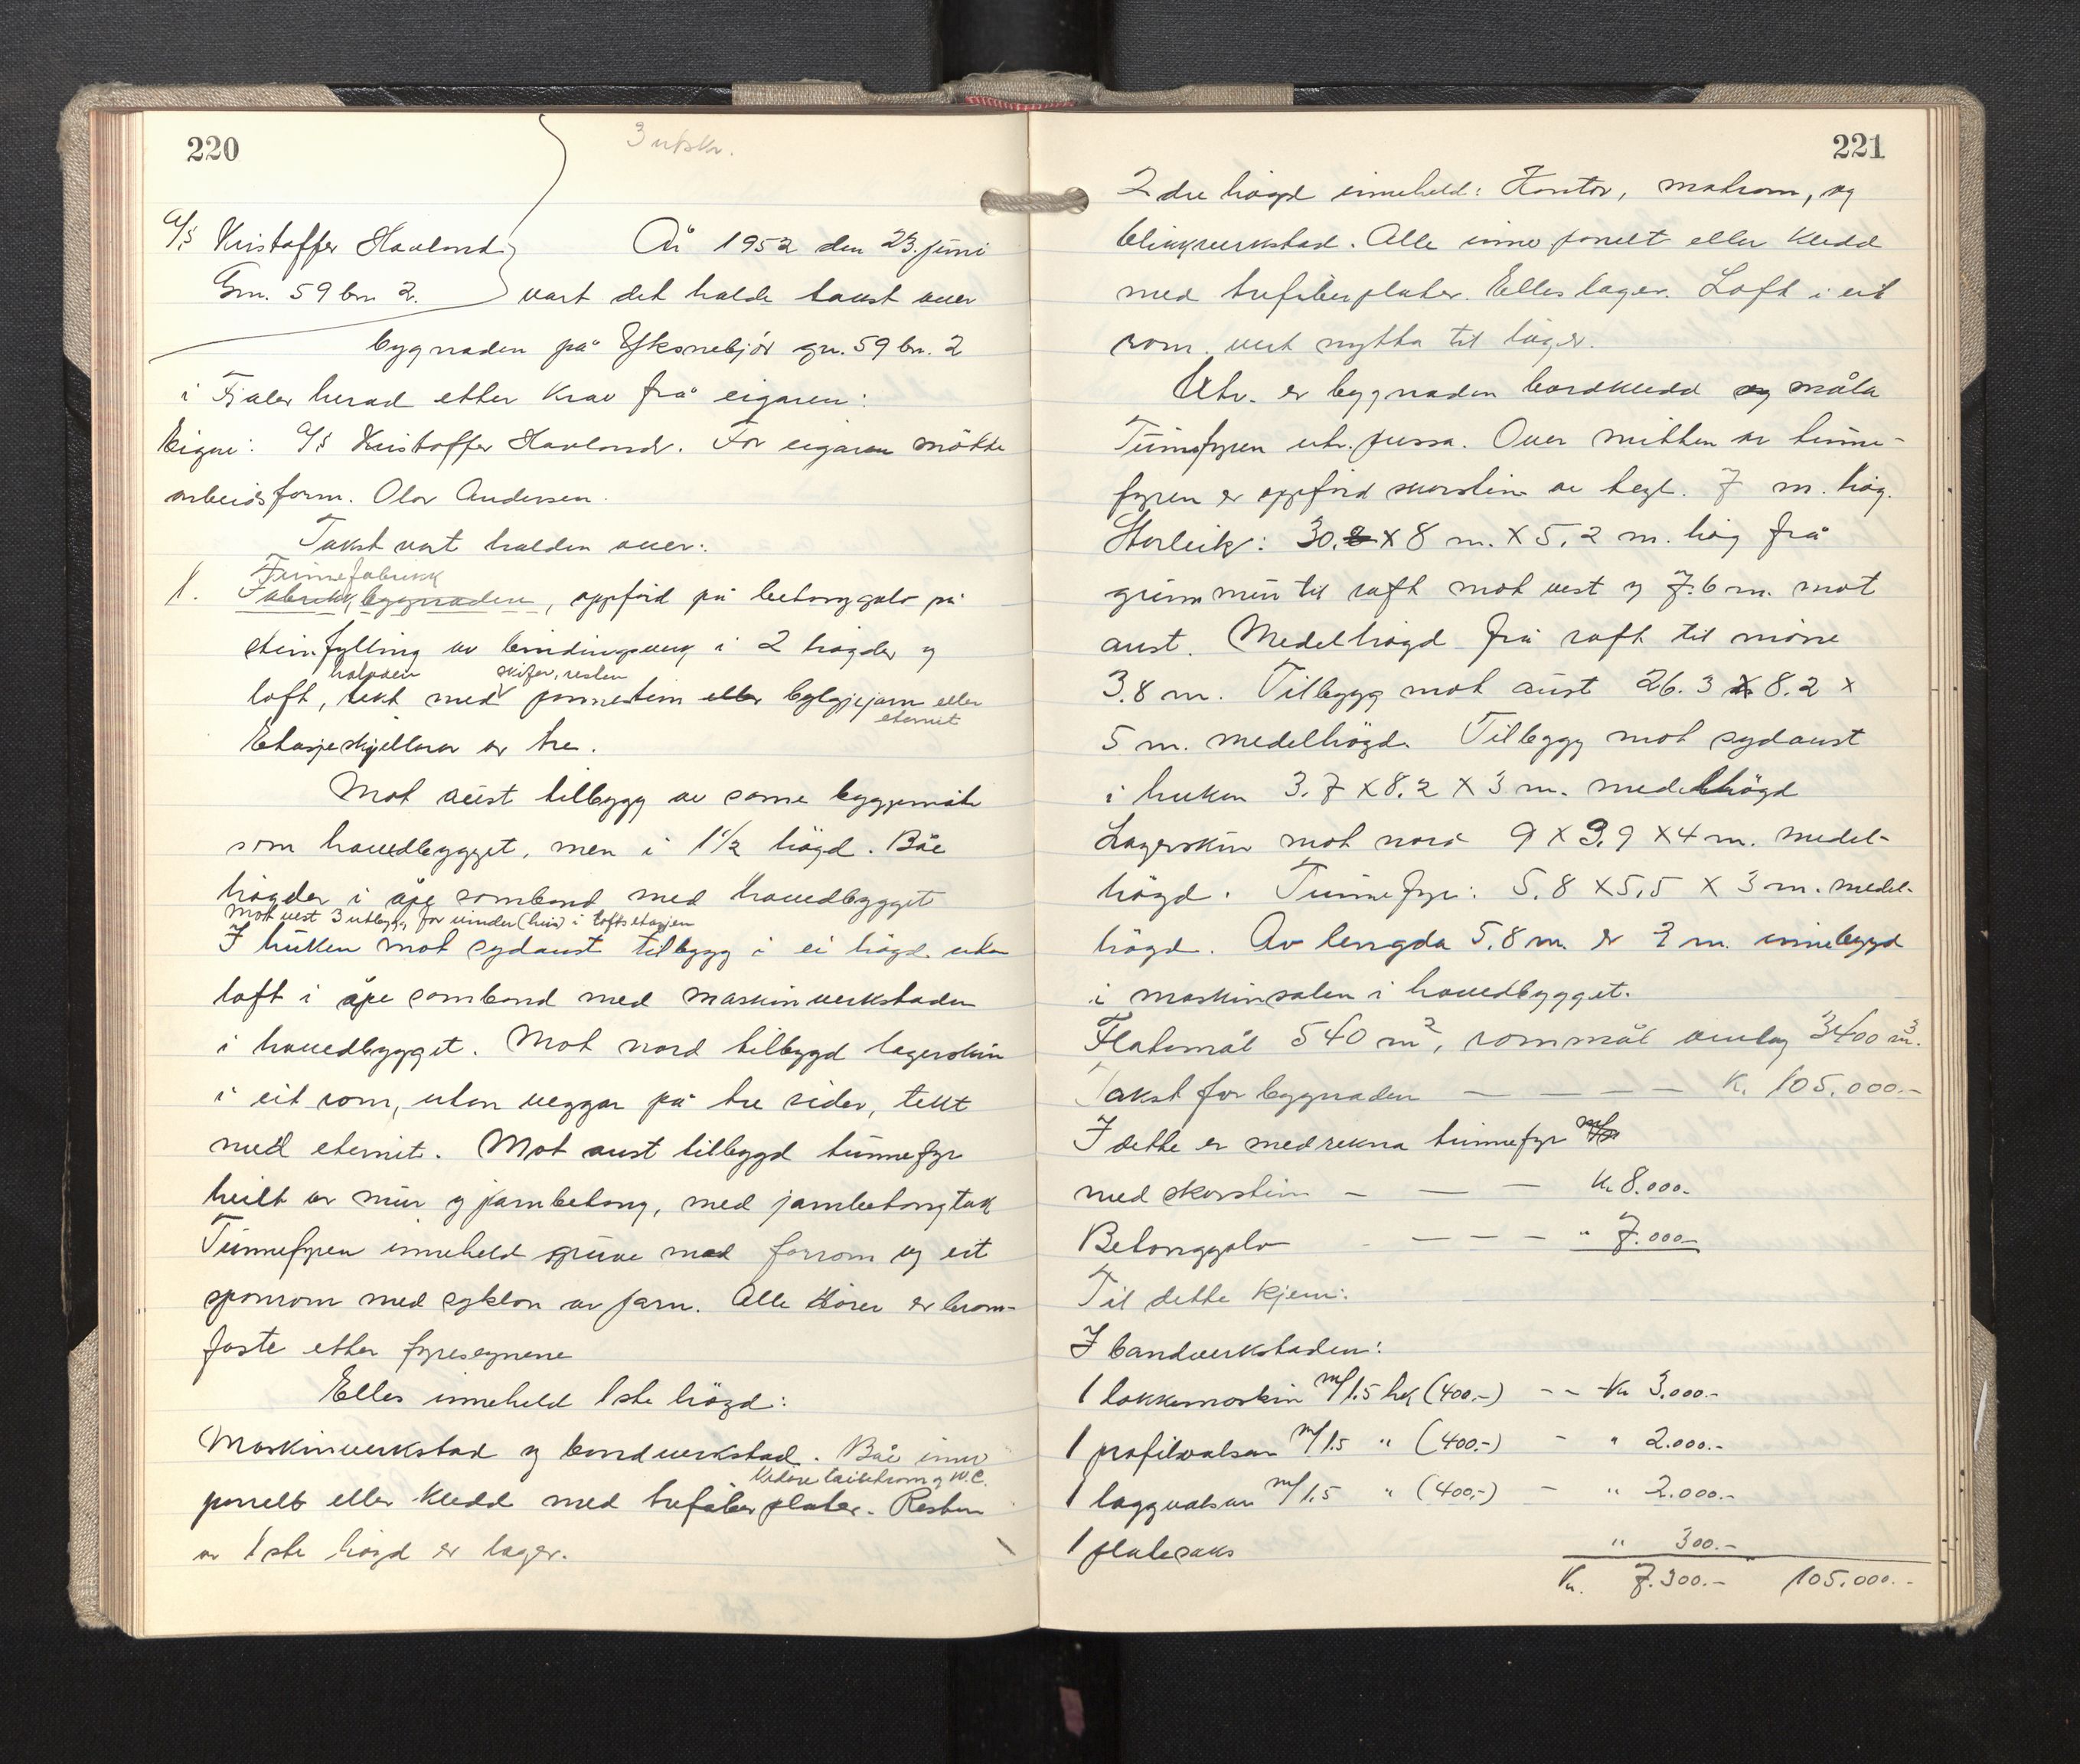 220
3 utskr.
A/S Kristoffer Havland
Gnr. 59 bn 2.
År 1952 den 23. juni
vart det halde takst over
bygnaden på Yksnebjör gn. 59 bn. 2
i Fjaler herad etter krav frå eigaren:
Eigar: A/S Kristoffer Havland. For eigaren mötte
arbeidsform. Olav Andersen.
Takst vart halden over:
Tunnefabrikk
1. Fabrikkbygnaden, oppförd på betonggolv på
steinfylling av bindingsverk i 2 högder og
halvdelen skifer, resten
loft, tekt med pannestein eller bylgjejarn eller
eternit
Etasjeskjellnar av tre.
Mot aust tilbygg av same byggjemåte
som hovedbygget, men i 1½ högd. Båe
högder i åpe samband med hovedbygget
Mot vest 3 utbygg for vinder (hus) i loftsetasjen
I huken mot sydaust tilbygg i ei högd utan
loft i åpe samband med maskinverkstaden
i hovedbygget. Mot nord tilbygd lagerskur
i eit rom, utan veggar på tre sider, tekt
med eternit. Mot aust tilbygd tunnefyr
heilt av mur og jarnbetong, med jarnbetongtak
Tunnefyren inneheld gruve med forrom og eit
sponrom med syklon av jarn. Alle dörer er brann-
faste etter fyresegnene
Elles inneheld 1ste högd:
Maskinverkstad og bandverkstad. Båe innv
Vidare toilettrom og W.C.
panelt eller kledd med trefiberplater. Resten
av 1ste högd er lager.
221
2dre högd inneheld: Kontor, matrom, og
blikkverkstad. Alle innv panelt eller kledd
med trefiberplater. Elles lager. Loft i eit
rom. vert nytta til lager.
Utv. er bygnaden bordkledd og måla
Tunnefyren utv. pussa. Over midten av tunne-
fyren er oppförd skorstein av tegl. 7 m. hög.
Storleik: 30.2 x 8 m. x 5,2 m. hög frå
grunnmur til raft mot vest og 7.6 m. mot
aust. Medelhögd frå raft til möne
3.8 m. Tilbygg mot aust 26.3 x 8.2 x
5 m. medelhögd. Tilbygg mot sydaust
i huken 3.7 x 8.2 x 3 m. medelhögd
Lagerskur mot nord 9 x 3.9 x 4 m. medel-
högd. Tunnefyr: 5.8 x 5,5 x 3 m. medel-
högd. Av lengda 5,8 m. er 2 m. innebygd
i maskinsalen i hovedbygget.
Flatemål 540 m², rommål omlag 3400 m³.
Takst for bygnaden — — — — K. 105.000.-
I dette er medrekna tunnefyr
med skorstein — — — Kr 8.000.-
Betonggolv — — — " 7.000.-
Til dette kjem:
I bandverkstaden:
1 lokkemaskin m/1.5 hk (400.-) - - Kr 3.000.-
1 profilvalsar m/1.5 " (400.-) - " 2.000.-
1 laggvalsar m/1,5 " (400,-) - " 2.000.-
1 platesaks " 300.-
Kr. 7.300.- 105.000.-